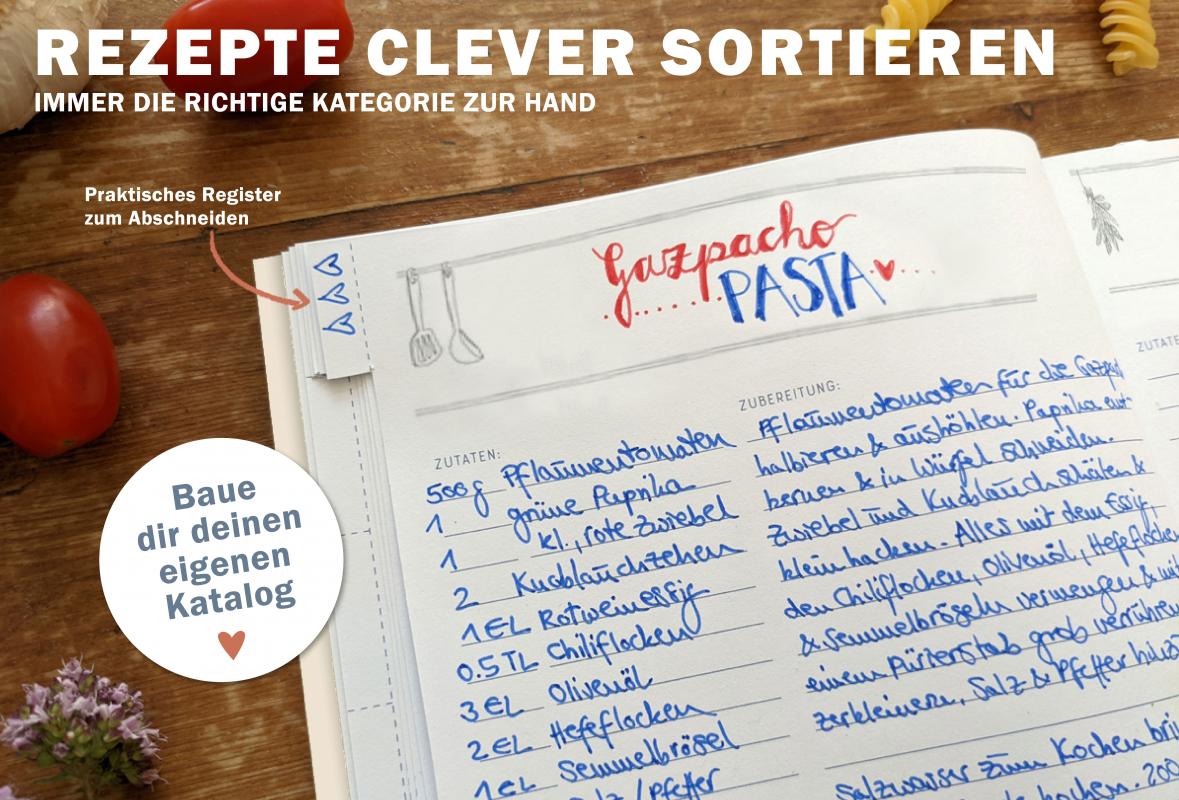 REZEPTE CLEVER SORTIEREN
IMMER DIE RICHTIGE KATEGORIE ZUR HAND
Praktisches Register
zum Abschneiden
Gazpacho
PASTA
ZUTATEN:
500g Pflaumentomaten
1 grüne Paprika
1 kl., rote Zwiebel
2 Knoblauchzehen
1 EL Rotweinessig
0.5 TL Chiliflocken
3 EL Olivenöl
2 EL Hefeflocken
1 EL Semmelbrösel
/Pfeffer
ZUBEREITUNG:
Pflaumentomaten für die
halbieren & aushöhlen. Paprika ent-
kernen & in Würfel schneiden.
Zwiebel und Knoblauch schälen &
klein hacken. Alles mit dem Essig,
den Chiliflocken, Olivenöl, Hefeflocken
& Semmelbröseln vermengen & mit
einem Pürierstab grob
zerkleinern, Salz & Pfeffer
Salzwasser zum Kochen
kochen. 200
Baue
dir deinen
eigenen
Katalog